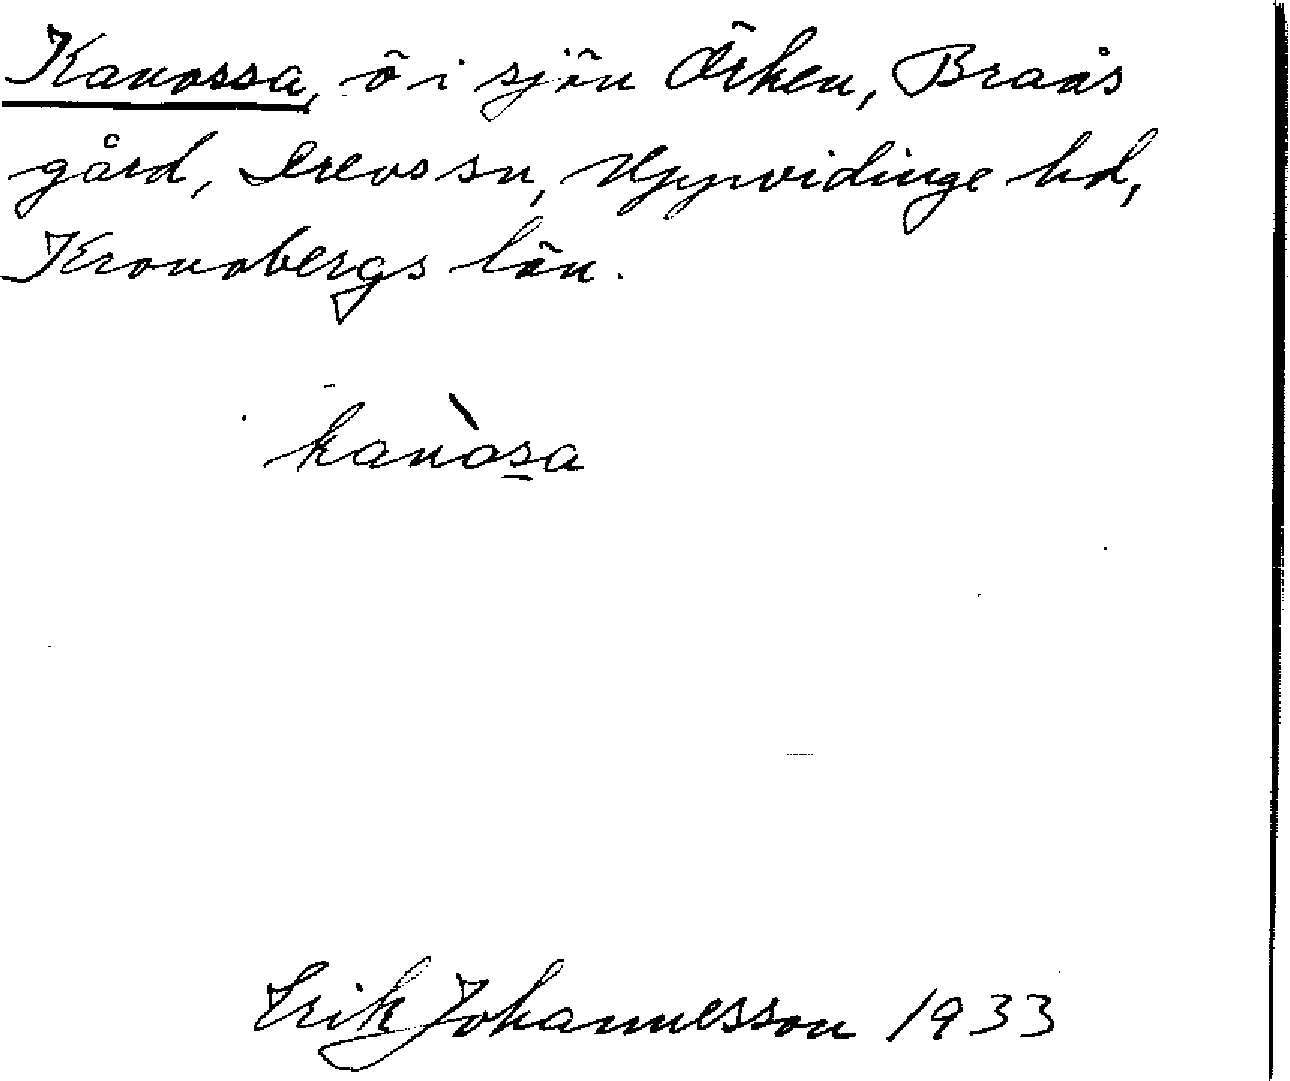 Kanossa, ö i sjön Örken, Braås
gård, Drevs sn, Uppvidinge hd,
Kronobergs län.
kanòs̲a
Erik Johannesson 1933